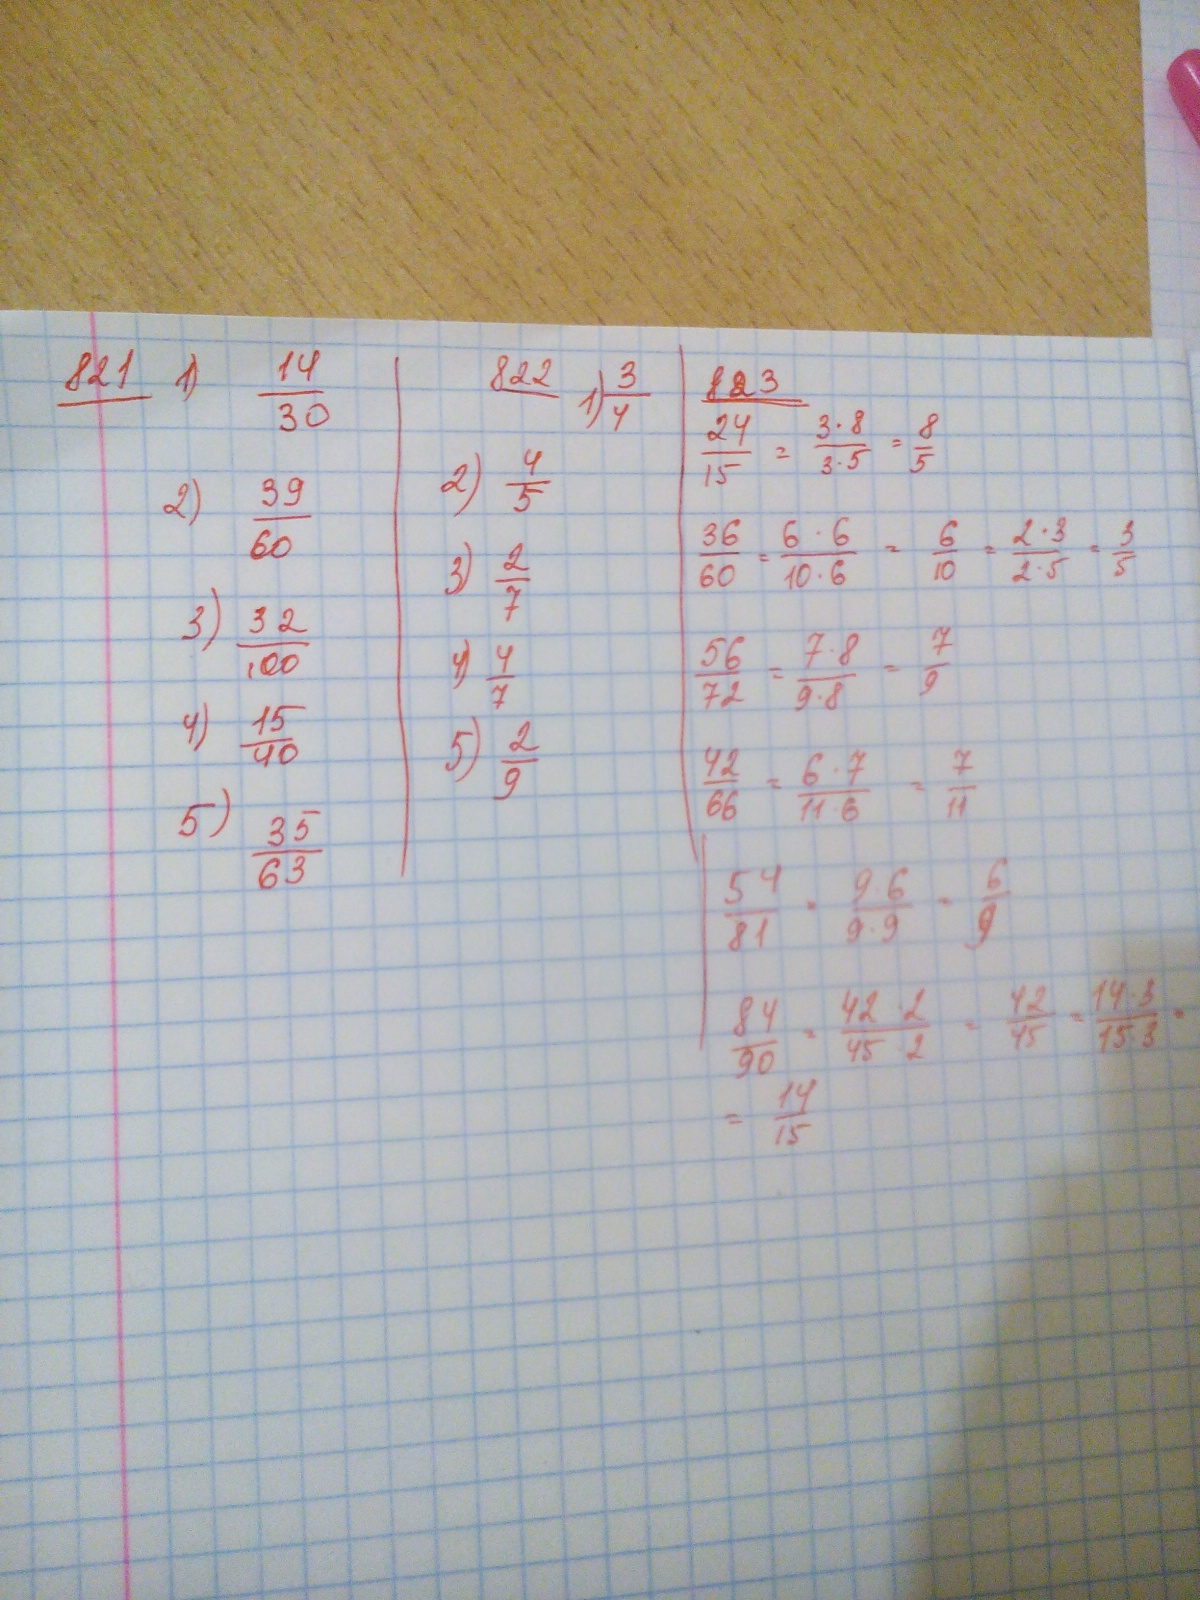 821 1) 14/30
2) 39/60
3) 32/100
4) 15/40
5) 35/63
822 1) 3/4
2) 4/5
3) 2/7
4) 4/7
5) 2/9
823
24/15 = 3·8/3·5 = 8/5
36/60 = 6·6/10·6 = 6/10 = 2·3/2·5 = 3/5
56/72 = 7·8/9·8 = 7/9
42/66 = 6·7/11·6 = 7/11
54/81 = 9·6/9·9 = 6/9
84/90 = 42·2/45·2 = 42/45 = 14·3/15·3 =
= 14/15